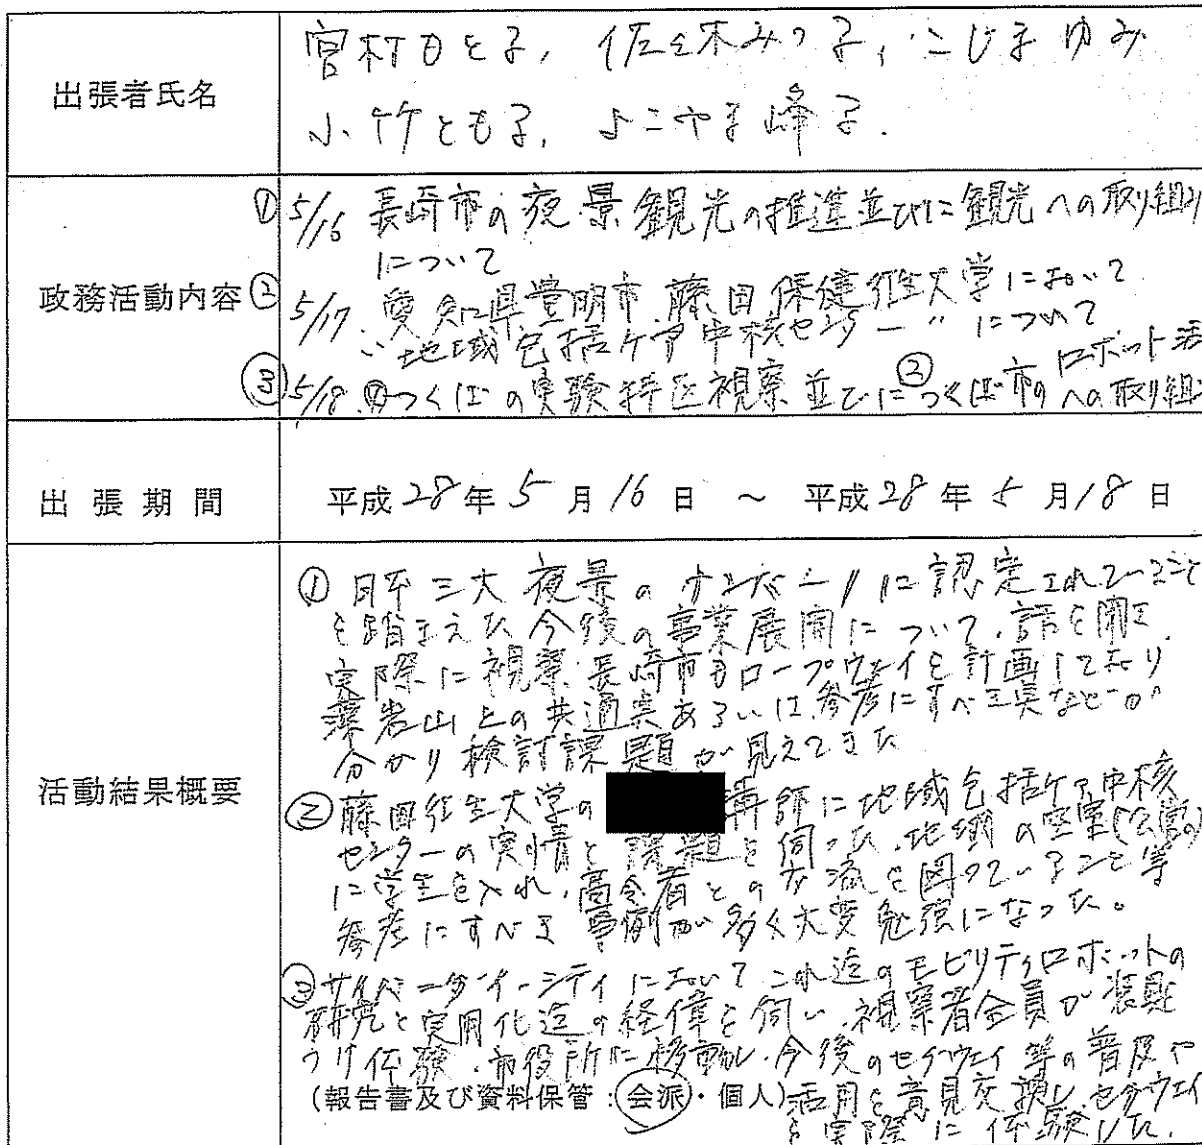 出張者氏名
宮村もと子, 佐々木みつ子, こじまゆみ
小竹ともる, よこやま峰子.
政務活動内容
① 5/16 長崎市の夜景観光の推進並びに観光への取り組み
について
② 5/17. 愛知県豊明市 藤田保健衛生大学において
"地域包括ケア中核センター"について
③ 5/18. ①つくばの実験特区視察並びに②つくば市のロボット活
への取り組
出張期間
平成28年5月16日 ~ 平成28年5月18日
活動結果概要
① 日本三大夜景のナンバー1に認定されていること
を踏まえた今後の事業展開について、話を聞き、
実際に視察.長崎市もロープウェイを計画しており
藻岩山との共通点あるいは、参考にすべき点などが
分かり検討課題が見えてきた
② 藤田衛生大学の 講師に地域包括ケア中核
センターの実情と課題を伺った.地域の空室(公営の)
に学生を入れ、高令者との交流を図っていること等
参考にすべき事例が多く大変勉強になった。
③ サイバーダイン-シティにおいてこれ迄のモビリティロボットの
研究と実用化迄の経偉を伺い、視察者全員が装具
つけ体験.市役所に移動し、今後のセグウェイ等の普及や
活用を意見交換し、セグウェイ
を実際に体験した.
(報告書及び資料保管:会派・個人)